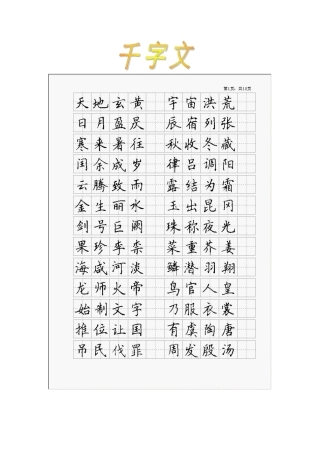 千字文
第1页，共11页
天地玄黄 宇宙洪荒
日月盈昃 辰宿列张
寒来暑往 秋收冬藏
闰余成岁 律吕调阳
云腾致雨 露结为霜
金生丽水 玉出昆冈
剑号巨阙 珠称夜光
果珍李柰 菜重芥姜
海咸河淡 鳞潜羽翔
龙师火帝 鸟官人皇
始制文字 乃服衣裳
推位让国 有虞陶唐
吊民伐罪 周发殷汤